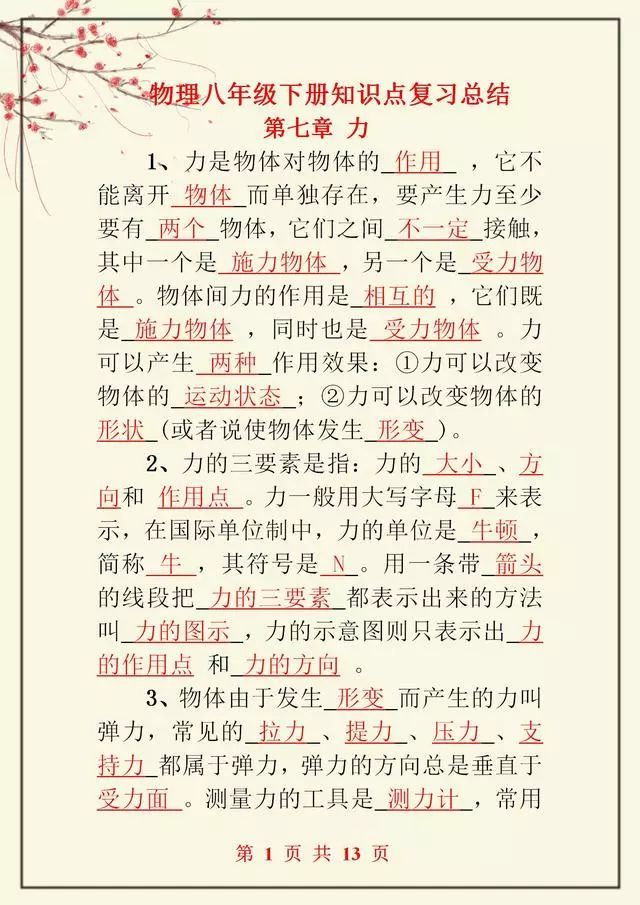 物理八年级下册知识点复习总结
第七章 力
1、力是物体对物体的 作用 ，它不
能离开 物体 而单独存在，要产生力至少
要有 两个 物体，它们之间 不一定 接触，
其中一个是 施力物体 ，另一个是 受力物
体 。物体间力的作用是 相互的 ，它们既
是 施力物体 ，同时也是 受力物体 。力
可以产生 两种 作用效果：①力可以改变
物体的 运动状态 ；②力可以改变物体的
形状 (或者说使物体发生 形变 )。
2、力的三要素是指：力的 大小 、方
向和 作用点 。力一般用大写字母 F 来表
示，在国际单位制中，力的单位是 牛顿 ，
简称 牛 ，其符号是 N 。用一条带 箭头
的线段把 力的三要素 都表示出来的方法
叫 力的图示 ，力的示意图则只表示出 力
的作用点 和 力的方向 。
3、物体由于发生 形变 而产生的力叫
弹力，常见的 拉力 、提力 、压力 、支
持力 都属于弹力，弹力的方向总是垂直于
受力面 。测量力的工具是 测力计 ，常用
第 1 页 共 13 页